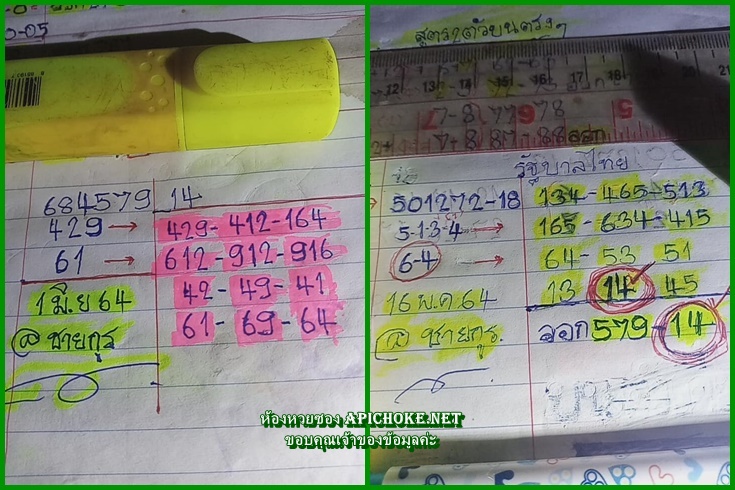 0-05
684579 14
429 → 429-412-164
61 → 612-912-916
42-49-41
61-69-64
1 มิ.ย 64
@ ชายกูร
สูตร 2 ตัวบนตรงๆ
12 13 14 15 16 17 18 21
7-8 77 78
7-8 87-88
รัฐบาลไทย
501272-18 134-465-513
5-1-3-4 → 165-634-415
6-4 → 64-53 51
13 14 45
16 พ.ค 64
ออก 579-14
@ ชายกูร.
ห้องหวยซอง APICHOKE.NET
ขอบคุณเจ้าของข้อมูลค่ะ